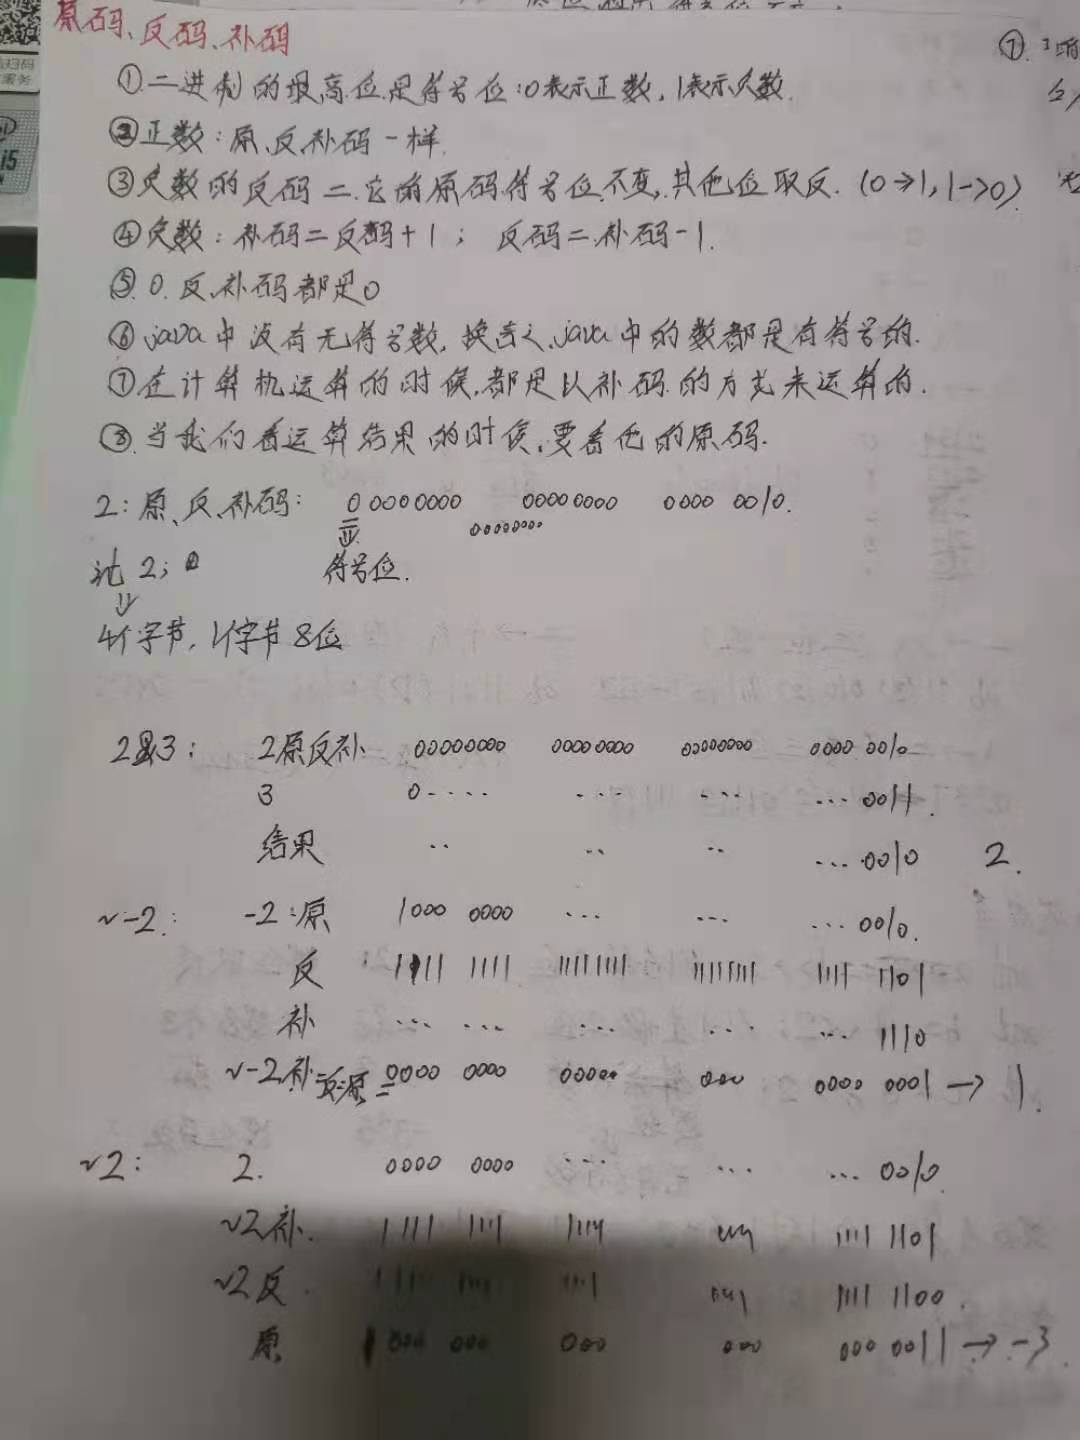 原码、反码、补码
①二进制的最高位是符号位:0表示正数,1表示负数.
②正数:原、反、补码一样.
③负数的反码=它的原码符号位不变,其他位取反.(0→1,1→0).
④负数:补码=反码+1; 反码=补码-1.
⑤0.反、补码都是0
⑥java中没有无符号数,换言之,java中的数都是有符号的.
⑦在计算机运算的时候,都是以补码的方式来运算的.
⑧当我们看运算结果的时候,要看他的原码.
2:原、反、补码: 0 0000000 00000000 0000 0010.
00000000
int 2; 符号位.
4个字节,1个字节8位
2&3: 2原反补. 00000000 00000000 00000000 0000 0010
3 0.... ... ... ...0011.
结果 .. .. .. ...0010 2.
~-2: -2:原 1000 0000 ... ... ...0010.
反 1111 1111 11111111 11111111 1111 1101
补 ... ... ... ... ... 1110
~-2补=反=原= 0000 0000 00000 000 0000 0001 → 1.
~2: 2. 0000 0000 ... ... ... 0010.
~2补. 1111 1111 1111 1111 1101
~2反. 1111 1100.
原 1000 000 000 000 000 0011 → -3.
①